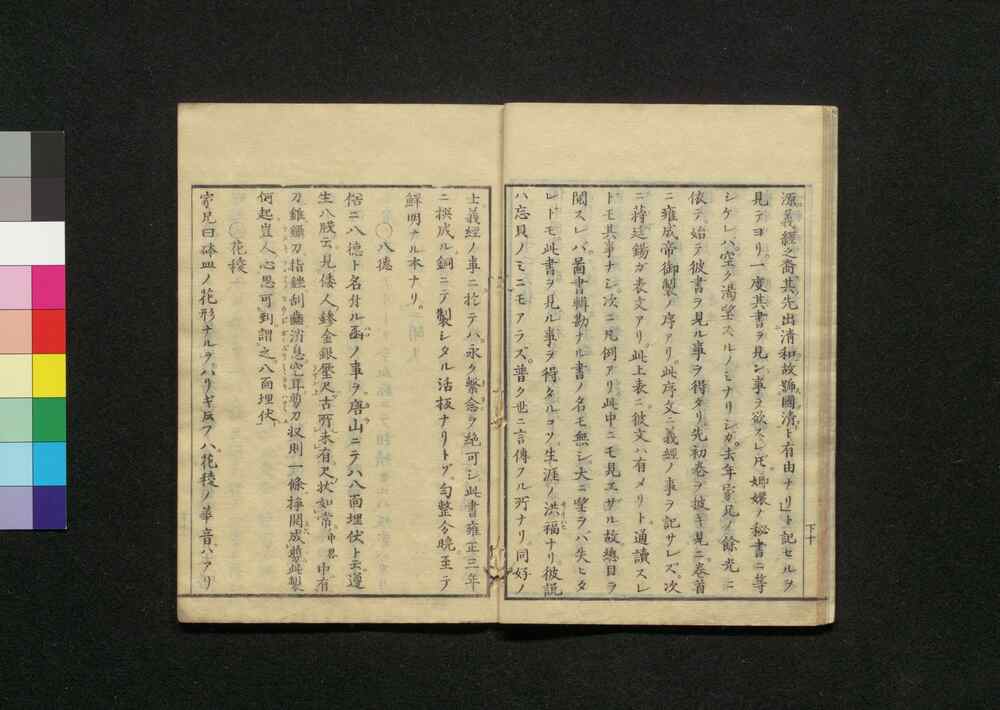 源義經之裔其先出清和故號國清ト有由ナリ」ト記セルヲ
見テヨリ。一度其書ヲ見ン事ヲ欲スレ𪜈。嫏嬛ノ秘書ニ等
シケレバ。空ク渇望スルノミナリシガ。去年家兄ノ餘光ニ
依テ始テ彼書ヲ見ル事ヲ得タリ先初巻ヲ披キ見ニ。巻首
ニ雍成帝御製ノ序アリ。此序文ニ義經ノ事ヲ記サレズ。次
ニ蒋廷錫ガ表文アリ。此上表ニ。彼文ハ有メリト通讀スレ
トモ其事ナシ。次ニ凡例アリ。此中ニモ見エザル故總目ヲ
閲スレバ。圖書輯勘ナル書ノ名モ無シ。大ニ望ヲバ失ヒタ
レトモ此書ヲ見ル事ヲ得タルコソ生涯ノ洪福ナリ。彼説
ハ忘貝ノミニモアラズ。普ク世ニ言傳フル所ナリ。同好ノ
下十
士義經ノ事ニ於テハ。永ク繋念ヲ絶可シ。此書雍正三年
ニ撰成ル。銅ニテ製シタル活板ナリトゾ。句整今曉至テ
鮮明ナル本ナリ。
〇八徳
俗ニ八徳ト名付ル函ノ事ヲ。唐山ニテハ八面埋伏ト云。邊
生八牋云見倭人鏒金銀壓尺古所未有尺狀如常。中有
刀錐鑷刀指銼刮齒消息空耳剪刀収則一條掙開成剪此製
何起豈人心思可到謂之。八面埋伏。
〇花稜
家兄曰砵皿ノ花形ナルヲバリギ反フハ。花稜ノ華音ハアリ